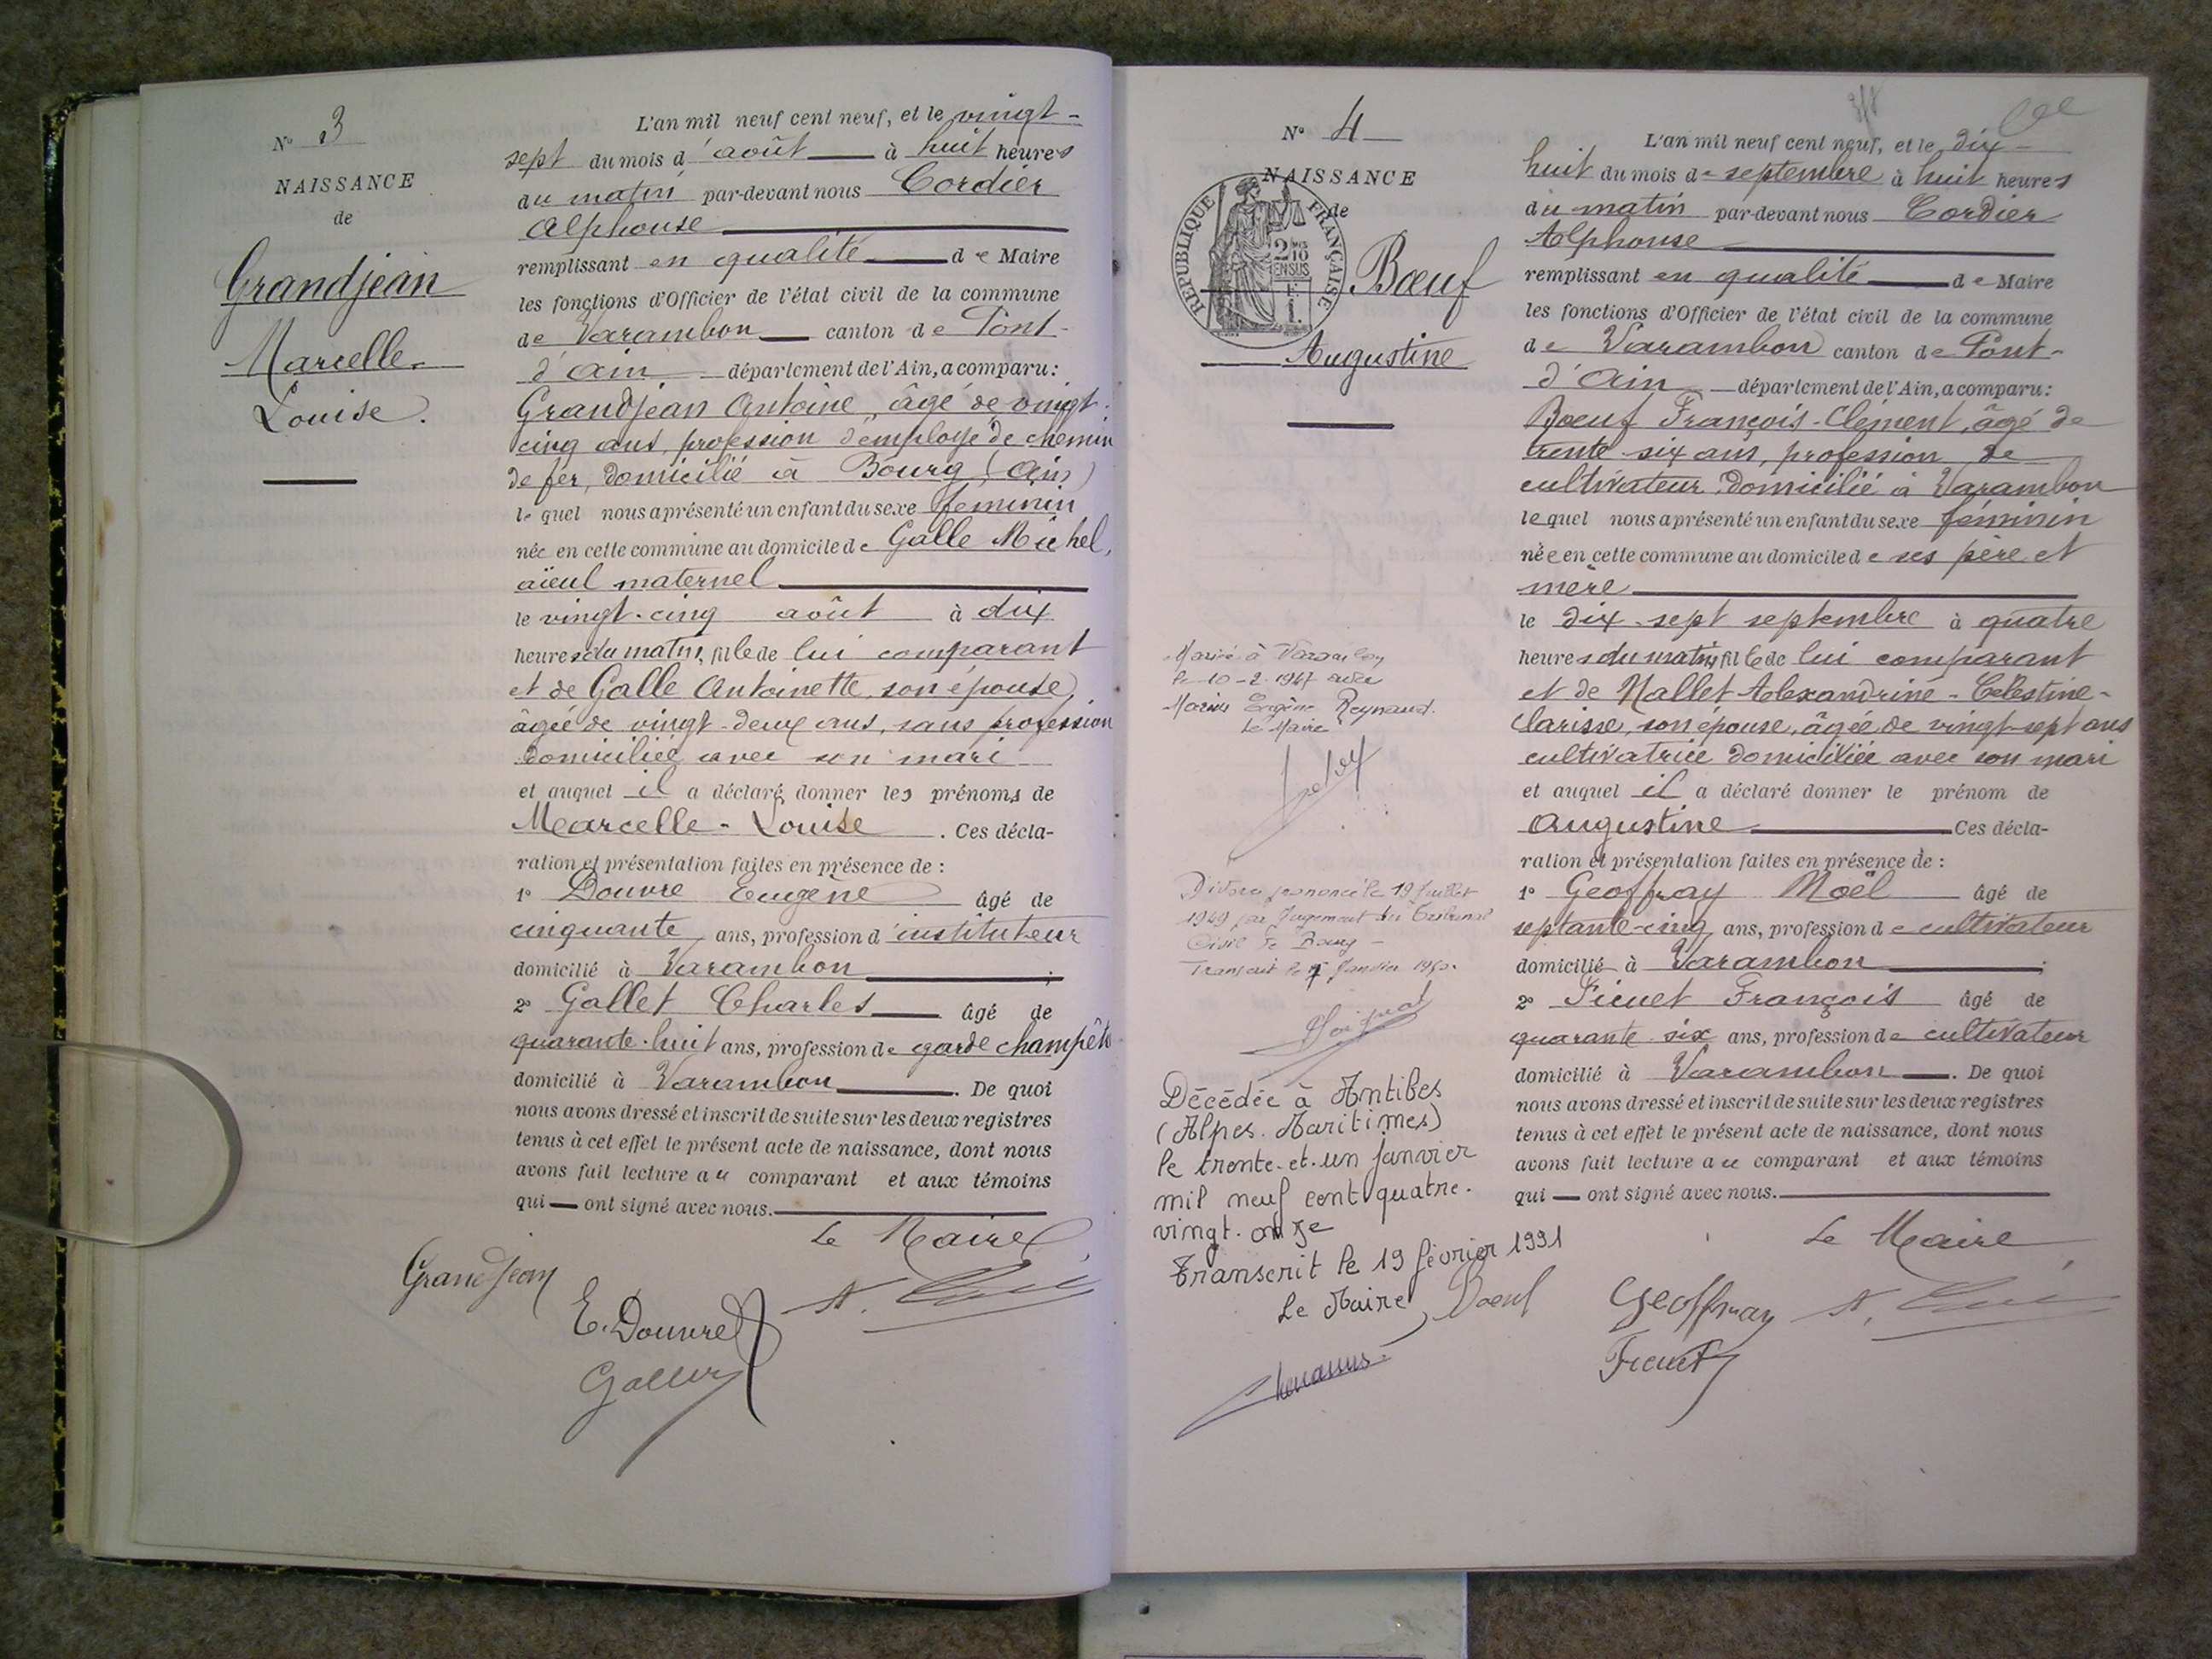 N° 3
NAISSANCE
de
Grandjean
Marcelle-
Louise.
L'an mil neuf cent neuf, et le vingt-
sept du mois d'août à huit heures
du matin par-devant nous Cordier
Alphonse
remplissant en qualité de Maire
les fonctions d'Officier de l'état civil de la commune
de Varambon canton de Pont-
d'Ain département de l'Ain, a comparu:
Grandjean Antoine, âgé de vingt-
cinq ans, profession d'employé de chemin
de fer, domicilié à Bourg (Ain)
lequel nous a présenté un enfant du sexe féminin
née en cette commune au domicile de Galle Michel,
aïeul maternel
le vingt-cinq août à dix
heures du matin, fille de lui comparant
et de Galle Antoinette, son épouse,
âgée de vingt-deux ans, sans profession
domiciliée avec son mari
et auquel il a déclaré donner les prénoms de
Marcelle-Louise. Ces décla-
ration et présentation faites en présence de :
1° Douvre Eugène âgé de
cinquante ans, profession d'instituteur
domicilié à Varambon ;
2° Gallet Charles âgé de
quarante-huit ans, profession de garde champêtre
domicilié à Varambon. De quoi
nous avons dressé et inscrit de suite sur les deux registres
tenus à cet effet le présent acte de naissance, dont nous
avons fait lecture au comparant et aux témoins
qui — ont signé avec nous.
Le Maire
Grandjean
E. Douvre
Gallet
N° 4
NAISSANCE
de
RÉPUBLIQUE FRANÇAISE
2/10 EN SUS
Bœuf
Augustine
L'an mil neuf cent neuf, et le dix-
huit du mois de septembre à huit heures
du matin par-devant nous Cordier
Alphonse
remplissant en qualité de Maire
les fonctions d'Officier de l'état civil de la commune
de Varambon canton de Pont-
d'Ain département de l'Ain, a comparu:
Bœuf François-Clément, âgé de
trente-six ans, profession de
cultivateur, domicilié à Varambon
lequel nous a présenté un enfant du sexe féminin
née en cette commune au domicile de ses père et
mère
le dix-sept septembre à quatre
heures du matin, fille de lui comparant
et de Mallet Alexandrine-Celestine-
Clarisse, son épouse, âgée de vingt-sept ans
cultivatrice domiciliée avec son mari
et auquel il a déclaré donner le prénom de
Augustine Ces décla-
ration et présentation faites en présence de :
1° Geoffray Moël âgé de
septante-cinq ans, profession de cultivateur
domicilié à Varambon ;
2° Ficuet François âgé de
quarante-six ans, profession de cultivateur
domicilié à Varambon. De quoi
nous avons dressé et inscrit de suite sur les deux registres
tenus à cet effet le présent acte de naissance, dont nous
avons fait lecture au comparant et aux témoins
qui — ont signé avec nous.
Le Maire
Geoffray
Mariée à Varambon
le 10-2-1947 avec
Marius Eugène Reynaud.
Le Maire
Divorce prononcé le 19 Juillet
1949 par Jugement du Tribunal
Civil de Bourg -
Transcrit le Janvier 1950.
Décédée à Antibes
(Alpes-Maritimes)
le trente-et-un janvier
mil neuf cent quatre-
vingt-onze
Transcrit le 19 février 1991
Le Maire,